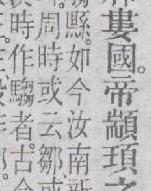 婁國。帝顓頊之
縣。如今汝南新
周時或云鄒或
時作騶者。古今